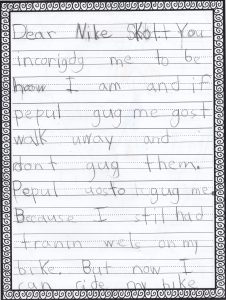 Dear Nike Skott You
incorigdg me to be
how I am and if
pepul gug me gost
walk uway and
dont gug them.
Pepul uosto gug me.
Because I still had
tranin wels on my
bike. But now I
can ride my bike